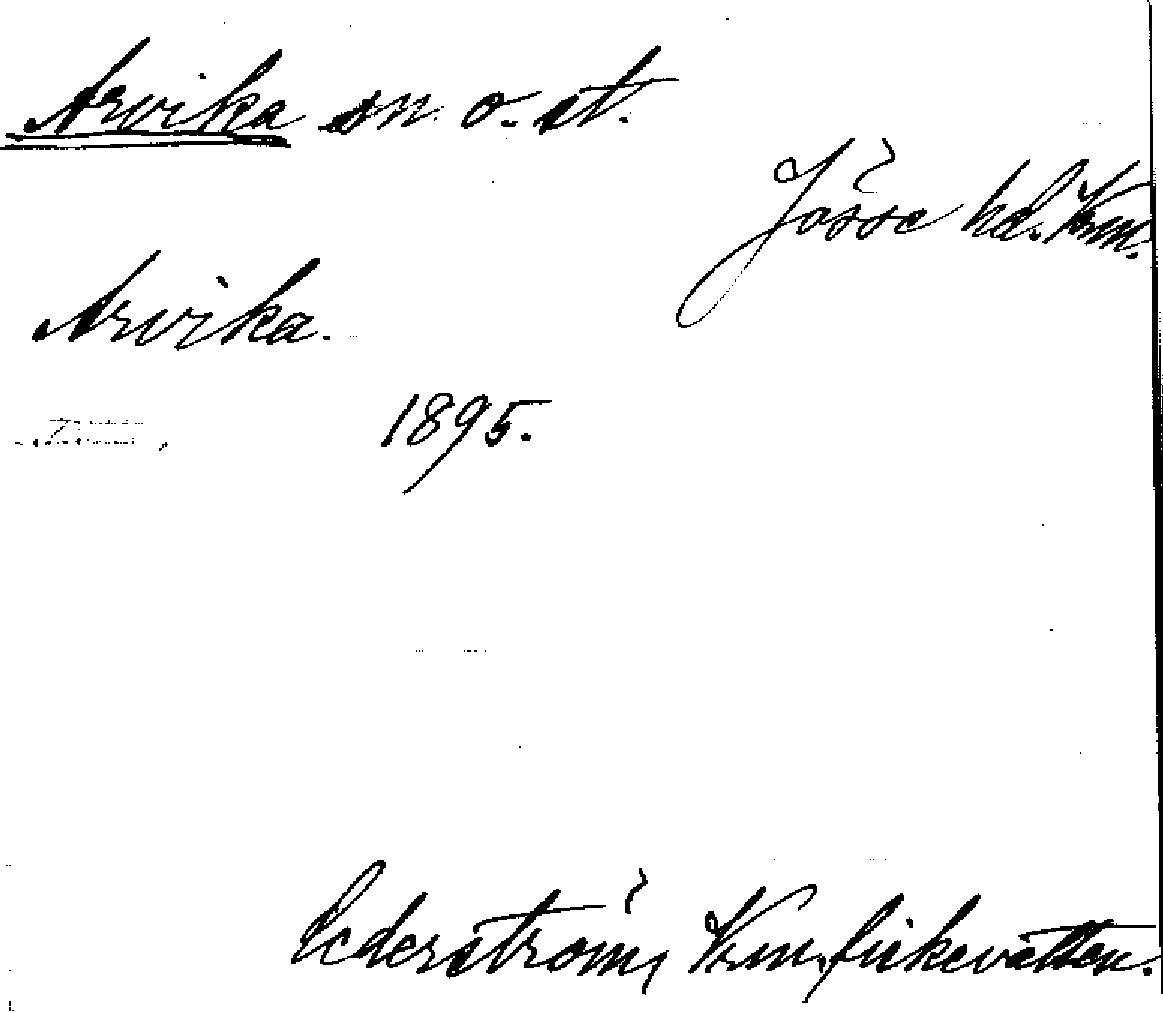 Arvika sn o. st.
Jösse hd. Vrm.
Arvika.
1895.
Cederström, Vrm. fiskevatten.